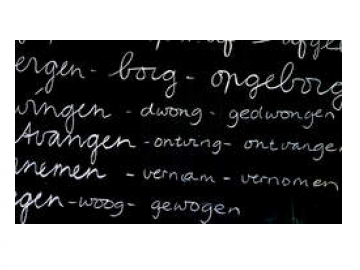 afge
ergen - borg - opgeborg
wingen - dwong - gedwongen
tvangen - ontving - ontvange
nemen - vernam - vernomen
gen - woog - gewogen